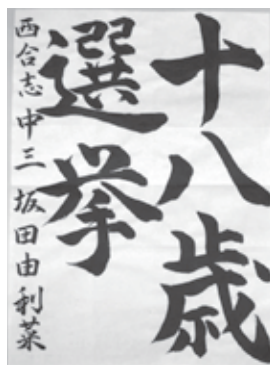 十八歳
選挙
西合志中三 坂田由利菜